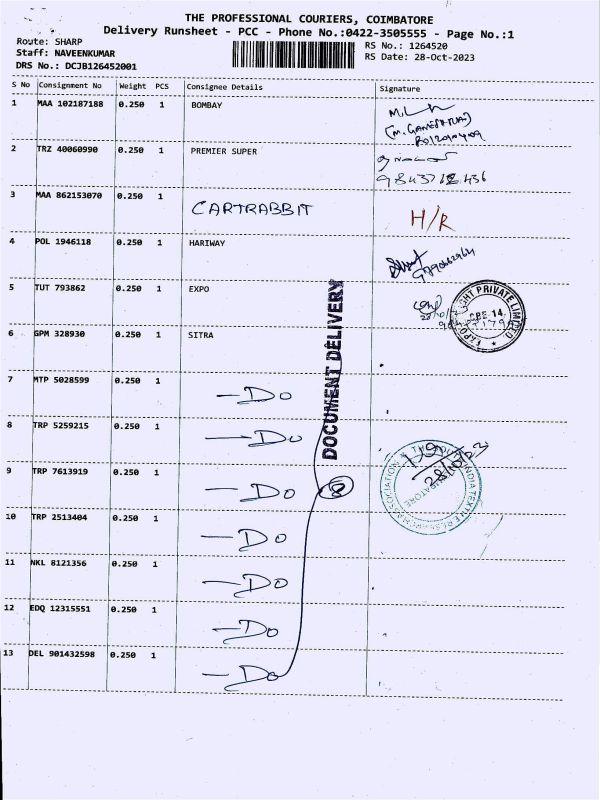 THE PROFESSIONAL COURIERS, COIMBATORE
Delivery Runsheet - PCC - Phone No.:0422-3505555 - Page No.:1
Route: SHARP
RS No.: 1264520
Staff: NAVEENKUMAR
RS Date: 28-Oct-2023
DRS No.: DCJB126452001
S No Consignment No Weight PCS Consignee Details Signature
1 MAA 102187188 0.250 1 BOMBAY
2 TRZ 40060990 0.250 1 PREMIER SUPER
3 MAA 862153070 0.250 1 CARTRABBIT H/R
4 POL 1946118 0.250 1 HARIWAY
5 TUT 793862 0.250 1 EXPO
PRIVATE LIMITED
CBE 14
6 GPM 328930 0.250 1 SITRA
DOCUMENT DELIVERY
7 MTP 5028599 0.250 1 -Do
8 TRP 5259215 0.250 1 -Do
9 TRP 7613919 0.250 1 -Do 8
28/10/23
10 TRP 2513404 0.250 1 -Do
11 NKL 8121356 0.250 1 -Do
12 EDQ 12315551 0.250 1 -Do
13 DEL 901432598 0.250 1 -Do